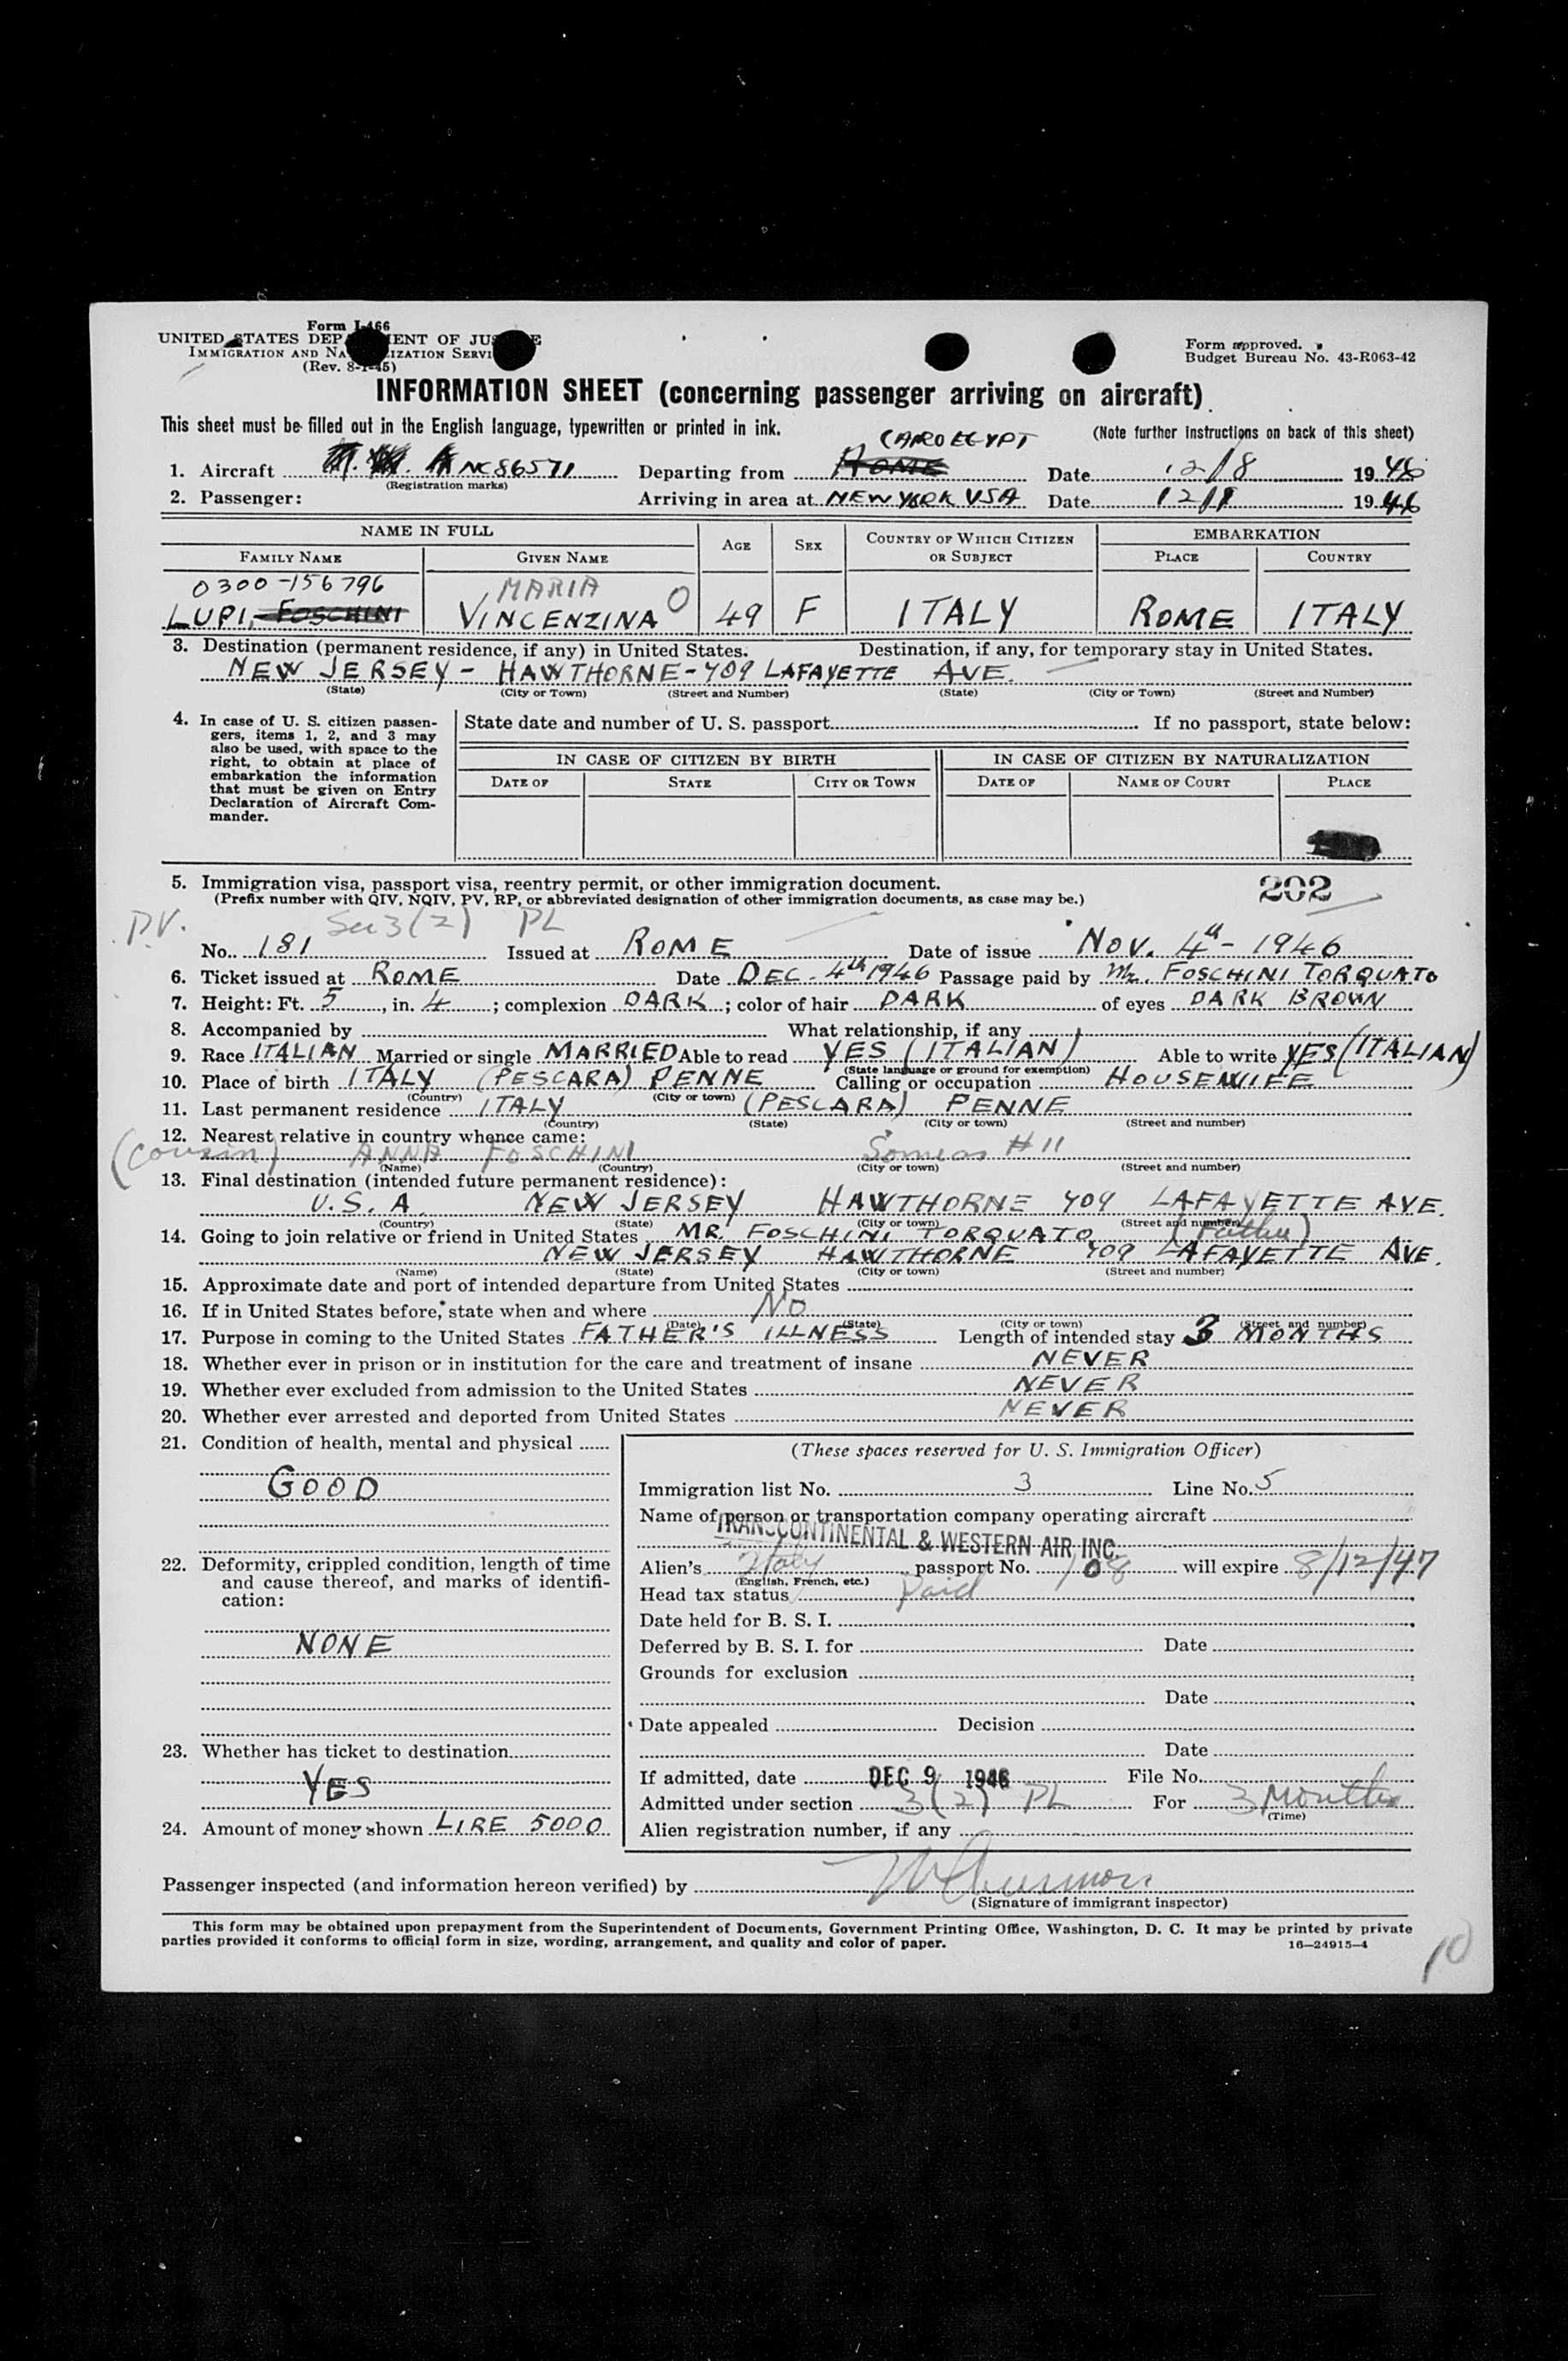 Form I-466
UNITED STATES DEP MENT OF JUS E
IMMIGRATION AND NA IZATION SERVI
(Rev. 8-1-45)
Form approved.
Budget Bureau No. 43-R063-42
INFORMATION SHEET (concerning passenger arriving on aircraft)
This sheet must be filled out in the English language, typewritten or printed in ink.
(Note further instructions on back of this sheet)
CAIRO EGYPT
1. Aircraft NC86571 Departing from ROME Date 12/8 1946
(Registration marks)
2. Passenger: Arriving in area at NEW YORK USA Date 12/9 1946
NAME IN FULL AGE SEX COUNTRY OF WHICH CITIZEN OR SUBJECT EMBARKATION
FAMILY NAME GIVEN NAME PLACE COUNTRY
0300-156796 MARIA
LUPI, FOSCHINI VINCENZINA O 49 F ITALY ROME ITALY
3. Destination (permanent residence, if any) in United States. Destination, if any, for temporary stay in United States.
NEW JERSEY - HAWTHORNE - 409 LAFAYETTE AVE.
(State) (City or Town) (Street and Number) (State) (City or Town) (Street and Number)
4. In case of U. S. citizen passengers, items 1, 2, and 3 may also be used, with space to the right, to obtain at place of embarkation the information that must be given on Entry Declaration of Aircraft Commander.
State date and number of U. S. passport If no passport, state below:
IN CASE OF CITIZEN BY BIRTH IN CASE OF CITIZEN BY NATURALIZATION
DATE OF STATE CITY OR TOWN DATE OF NAME OF COURT PLACE
5. Immigration visa, passport visa, reentry permit, or other immigration document. 202
(Prefix number with QIV, NQIV, PV, RP, or abbreviated designation of other immigration documents, as case may be.)
P.V. Sec 3(2) PL
No. 181 Issued at ROME Date of issue NOV. 4th - 1946
6. Ticket issued at ROME Date DEC. 4th 1946 Passage paid by Mr. FOSCHINI TORQUATO
7. Height: Ft. 5, in. 4; complexion DARK; color of hair DARK of eyes DARK BROWN
8. Accompanied by What relationship, if any
9. Race ITALIAN Married or single MARRIED Able to read YES (ITALIAN) Able to write YES (ITALIAN)
(State language or ground for exemption)
10. Place of birth ITALY (PESCARA) PENNE Calling or occupation HOUSEWIFE
(Country) (City or town)
11. Last permanent residence ITALY (PESCARA) PENNE
(Country) (State) (City or town) (Street and number)
12. Nearest relative in country whence came:
(Cousin) ANNA FOSCHINI # 11
(Name) (Country) (City or town) (Street and number)
13. Final destination (intended future permanent residence):
U.S.A. NEW JERSEY HAWTHORNE 409 LAFAYETTE AVE.
(Country) (State) (City or town) (Street and number)
14. Going to join relative or friend in United States MR. FOSCHINI TORQUATO (Father)
NEW JERSEY HAWTHORNE 409 LAFAYETTE AVE.
(Name) (State) (City or town) (Street and number)
15. Approximate date and port of intended departure from United States
16. If in United States before, state when and where NO
(Date) (State) (City or town) (Street and number)
17. Purpose in coming to the United States FATHER'S ILLNESS Length of intended stay 3 MONTHS
18. Whether ever in prison or in institution for the care and treatment of insane NEVER
19. Whether ever excluded from admission to the United States NEVER
20. Whether ever arrested and deported from United States NEVER
21. Condition of health, mental and physical
GOOD
22. Deformity, crippled condition, length of time and cause thereof, and marks of identification:
NONE
23. Whether has ticket to destination
YES
24. Amount of money shown LIRE 5000
(These spaces reserved for U. S. Immigration Officer)
Immigration list No. 3 Line No. 5
Name of person or transportation company operating aircraft
TRANSCONTINENTAL & WESTERN AIR INC.
Alien's Italy passport No. 108 will expire 8/12/47
(English, French, etc.)
Head tax status Paid
Date held for B. S. I.
Deferred by B. S. I. for Date
Grounds for exclusion
Date
Date appealed Decision
Date
If admitted, date DEC 9 1946 File No.
Admitted under section 3(2) PL For 3 Months
(Time)
Alien registration number, if any
Passenger inspected (and information hereon verified) by
(Signature of immigrant inspector)
This form may be obtained upon prepayment from the Superintendent of Documents, Government Printing Office, Washington, D. C. It may be printed by private
parties provided it conforms to official form in size, wording, arrangement, and quality and color of paper. 16—24915-4
10